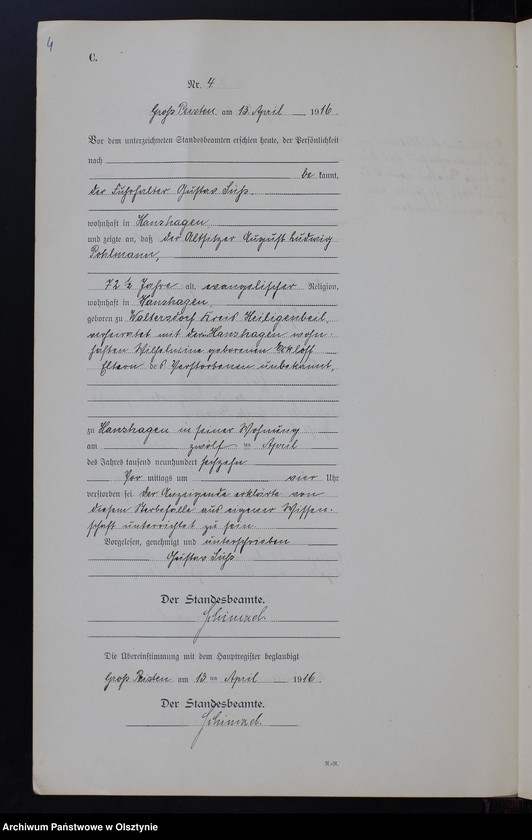 4
C.
Nr. 4
Groß Peisten am 13. April 1916.
Vor dem unterzeichneten Standesbeamten erschien heute, der Persönlichkeit
nach
be kannt,
der Fuhrhalter Gustav Süß.
wohnhaft in Hanshagen
und zeigte an, daß der Altsitzer August Ludwig
Pohlmann,
72 ½ Jahre alt, evangelischer Religion,
wohnhaft in Hanshagen,
geboren zu Waltersdorf Kreis Heiligenbeil,
verheiratet mit der Hanshagen wohn-
haften Wilhelmine geborenen
Eltern des Verstorbenen unbekannt,
zu Hanshagen in seiner Wohnung
am zwölften April
des Jahres tausend neunhundert sechzehn
Vor mittags um vier Uhr
verstorben sei. Der Anzeigende erklärte von
diesem Sterbefalle aus eigener Wissen-
schaft unterrichtet zu sein.
Vorgelesen, genehmigt und unterschrieben
Gustav Süß
Der Standesbeamte.
Die Übereinstimmung mit dem Hauptregister beglaubigt
Groß Peisten am 13 ten April 1916.
Der Standesbeamte.
Archiwum Państwowe w Olsztynie